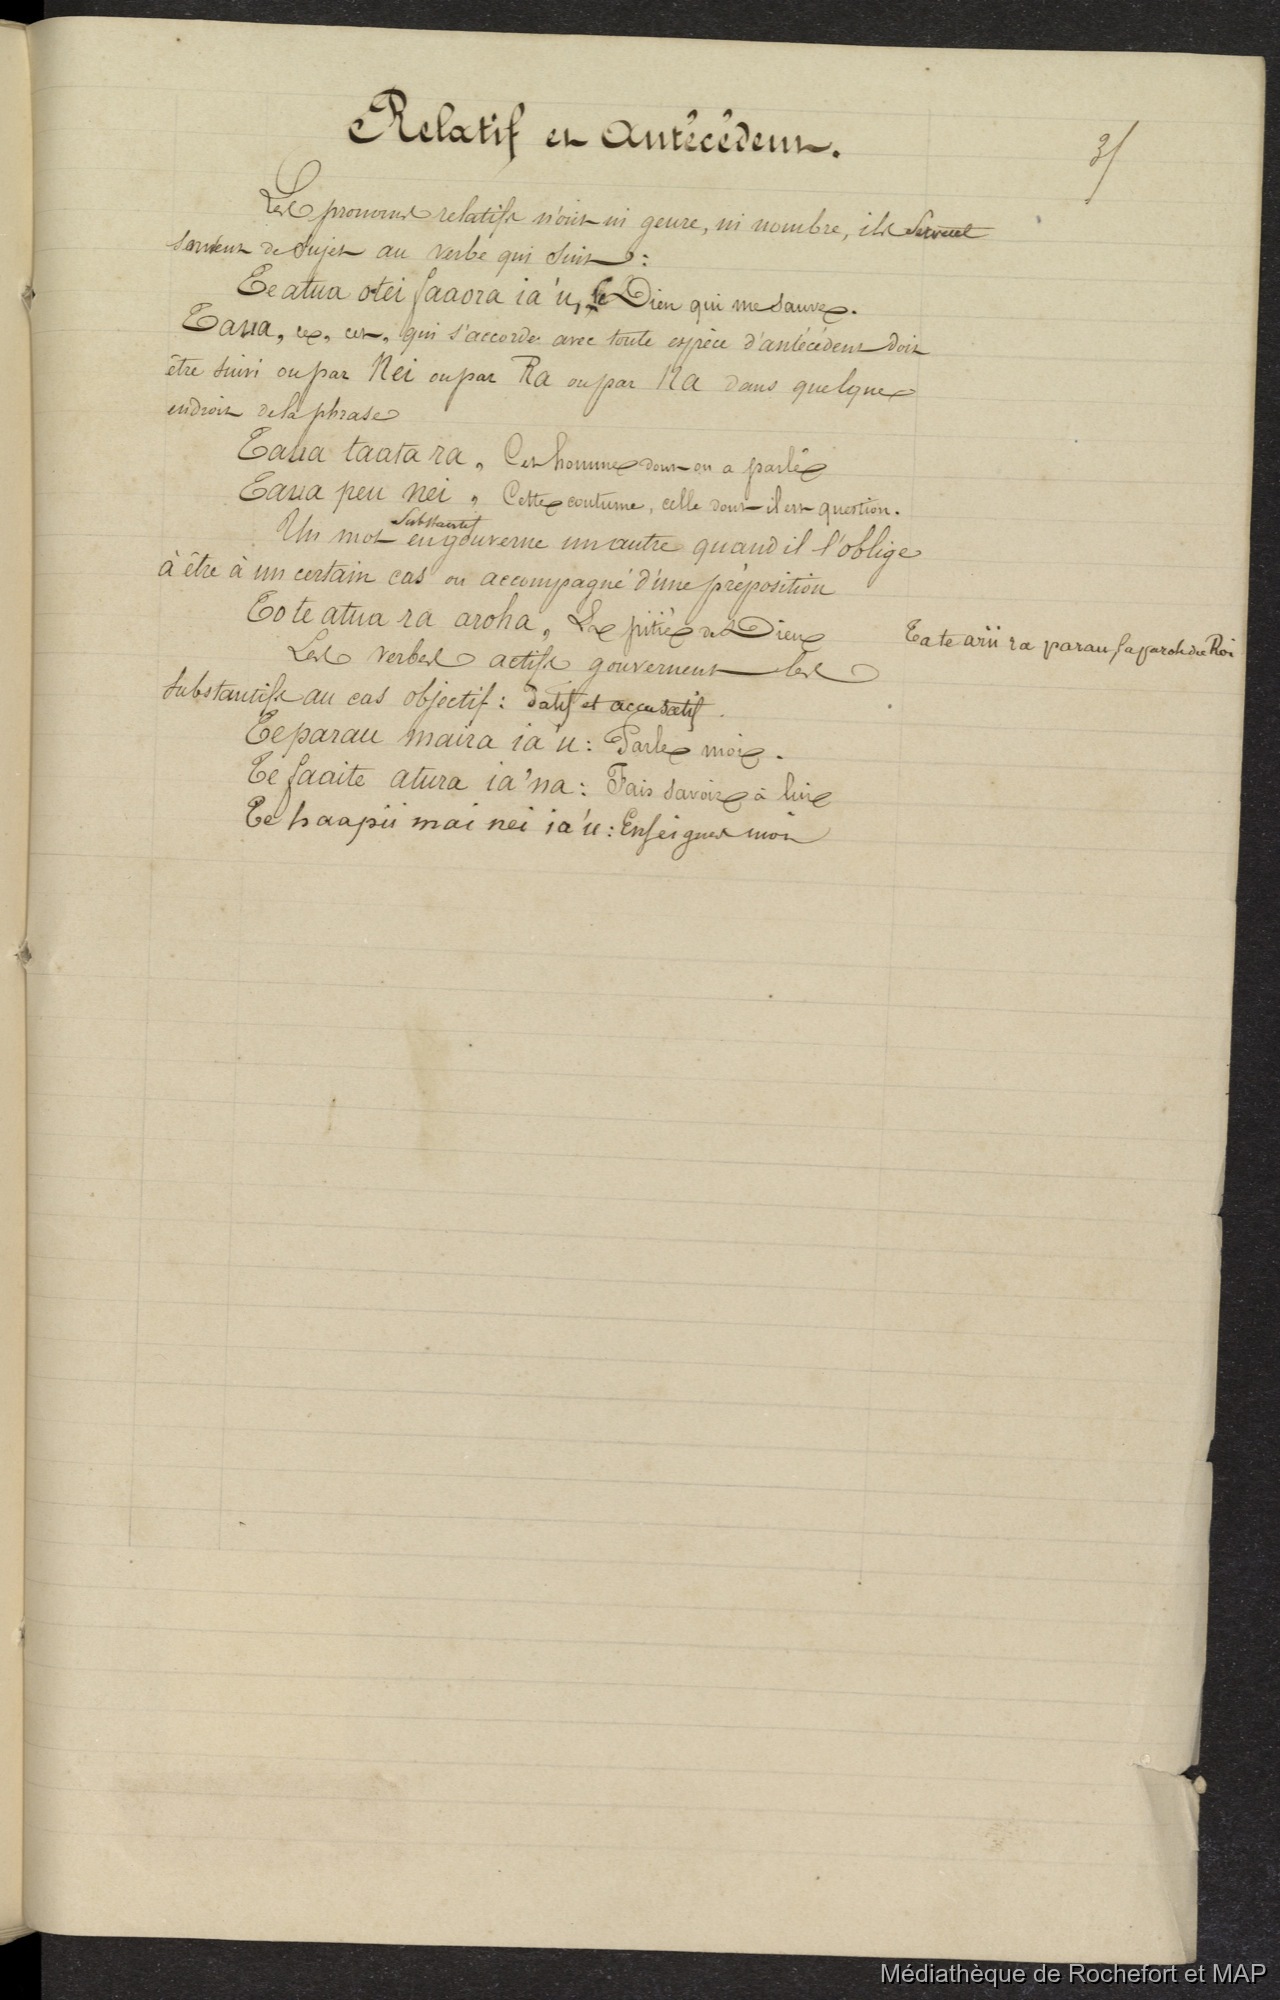 Relatif et Antécédent.
31
Les pronoms relatifs n'ont ni genre, ni nombre, ils servent
servent de sujet au verbe qui suit :
Te atua o tei faaora ia'u, le Dieu qui me sauve.
Taua, ce, cet, qui s'accorde avec toute espèce d'antécédent doit
être suivi ou par Nei ou par Ra ou par Na dans quelque
endroit de la phrase
Taua taata ra, Cet homme dont on a parlé
Taua peu nei, Cette coutume, celle dont il est question.
Substantif
Un mot en gouverne un autre quand il l'oblige
à être à un certain cas ou accompagné d'une préposition
To te atua ra aroha, La pitié de Dieu
Ta te arii ra parau la parole du Roi
Les verbes actifs gouvernent les
substantifs au cas objectif : datif et accusatif.
Te parau maira ia'u : Parle moi.
Te faaite atura ia'na : Fais savoir à lui
Te haapii mai nei ia'u : Enseignes moi
Médiathèque de Rochefort et MAP